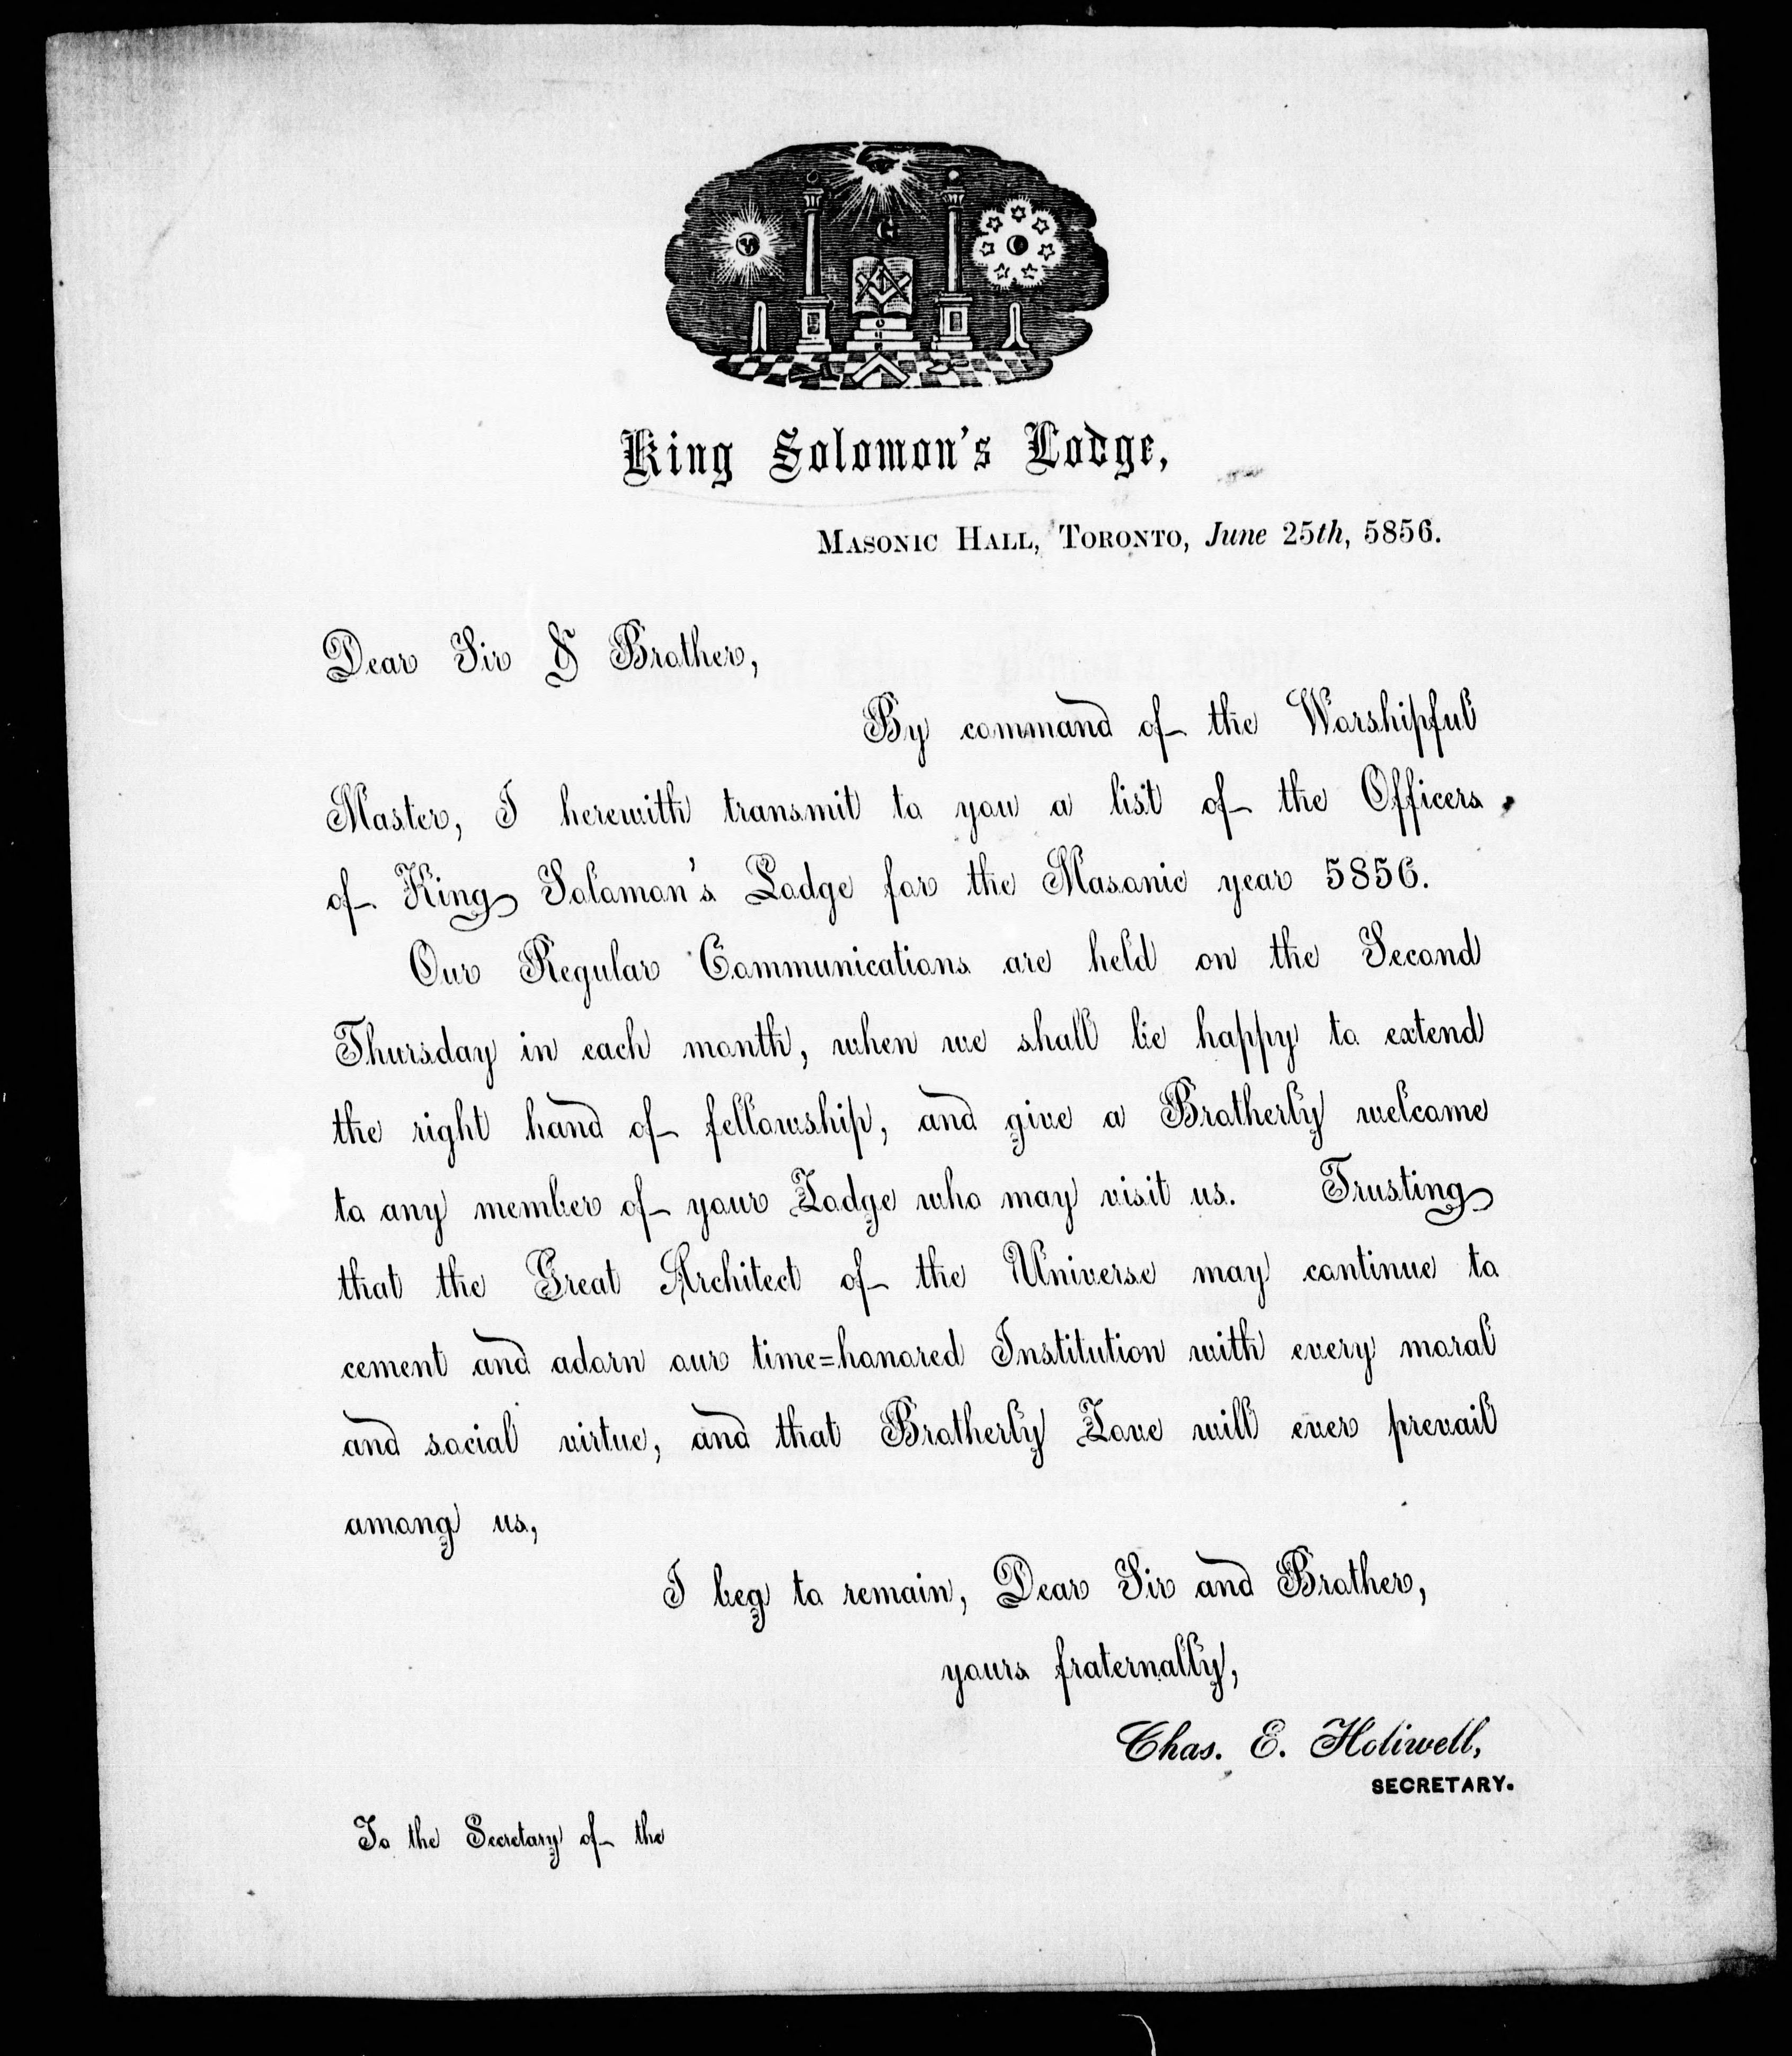 G
King Solomon's Lodge,
MASONIC HALL, TORONTO, June 25th, 5856.
Dear Sir & Brother,
By command of the Worshipful
Master, I herewith transmit to you a list of the Officers
of King Solomon's Lodge for the Masonic year 5856.
Our Regular Communications are held on the Second
Thursday in each month, when we shall be happy to extend
the right hand of fellowship, and give a Brotherly welcome
to any member of your Lodge who may visit us. Trusting
that the Great Architect of the Universe may continue to
cement and adorn our time=honored Institution with every moral
and social virtue, and that Brotherly Love will ever prevail
among us,
I beg to remain, Dear Sir and Brother,
yours fraternally,
Chas. E. Holiwell,
SECRETARY.
To the Secretary of the